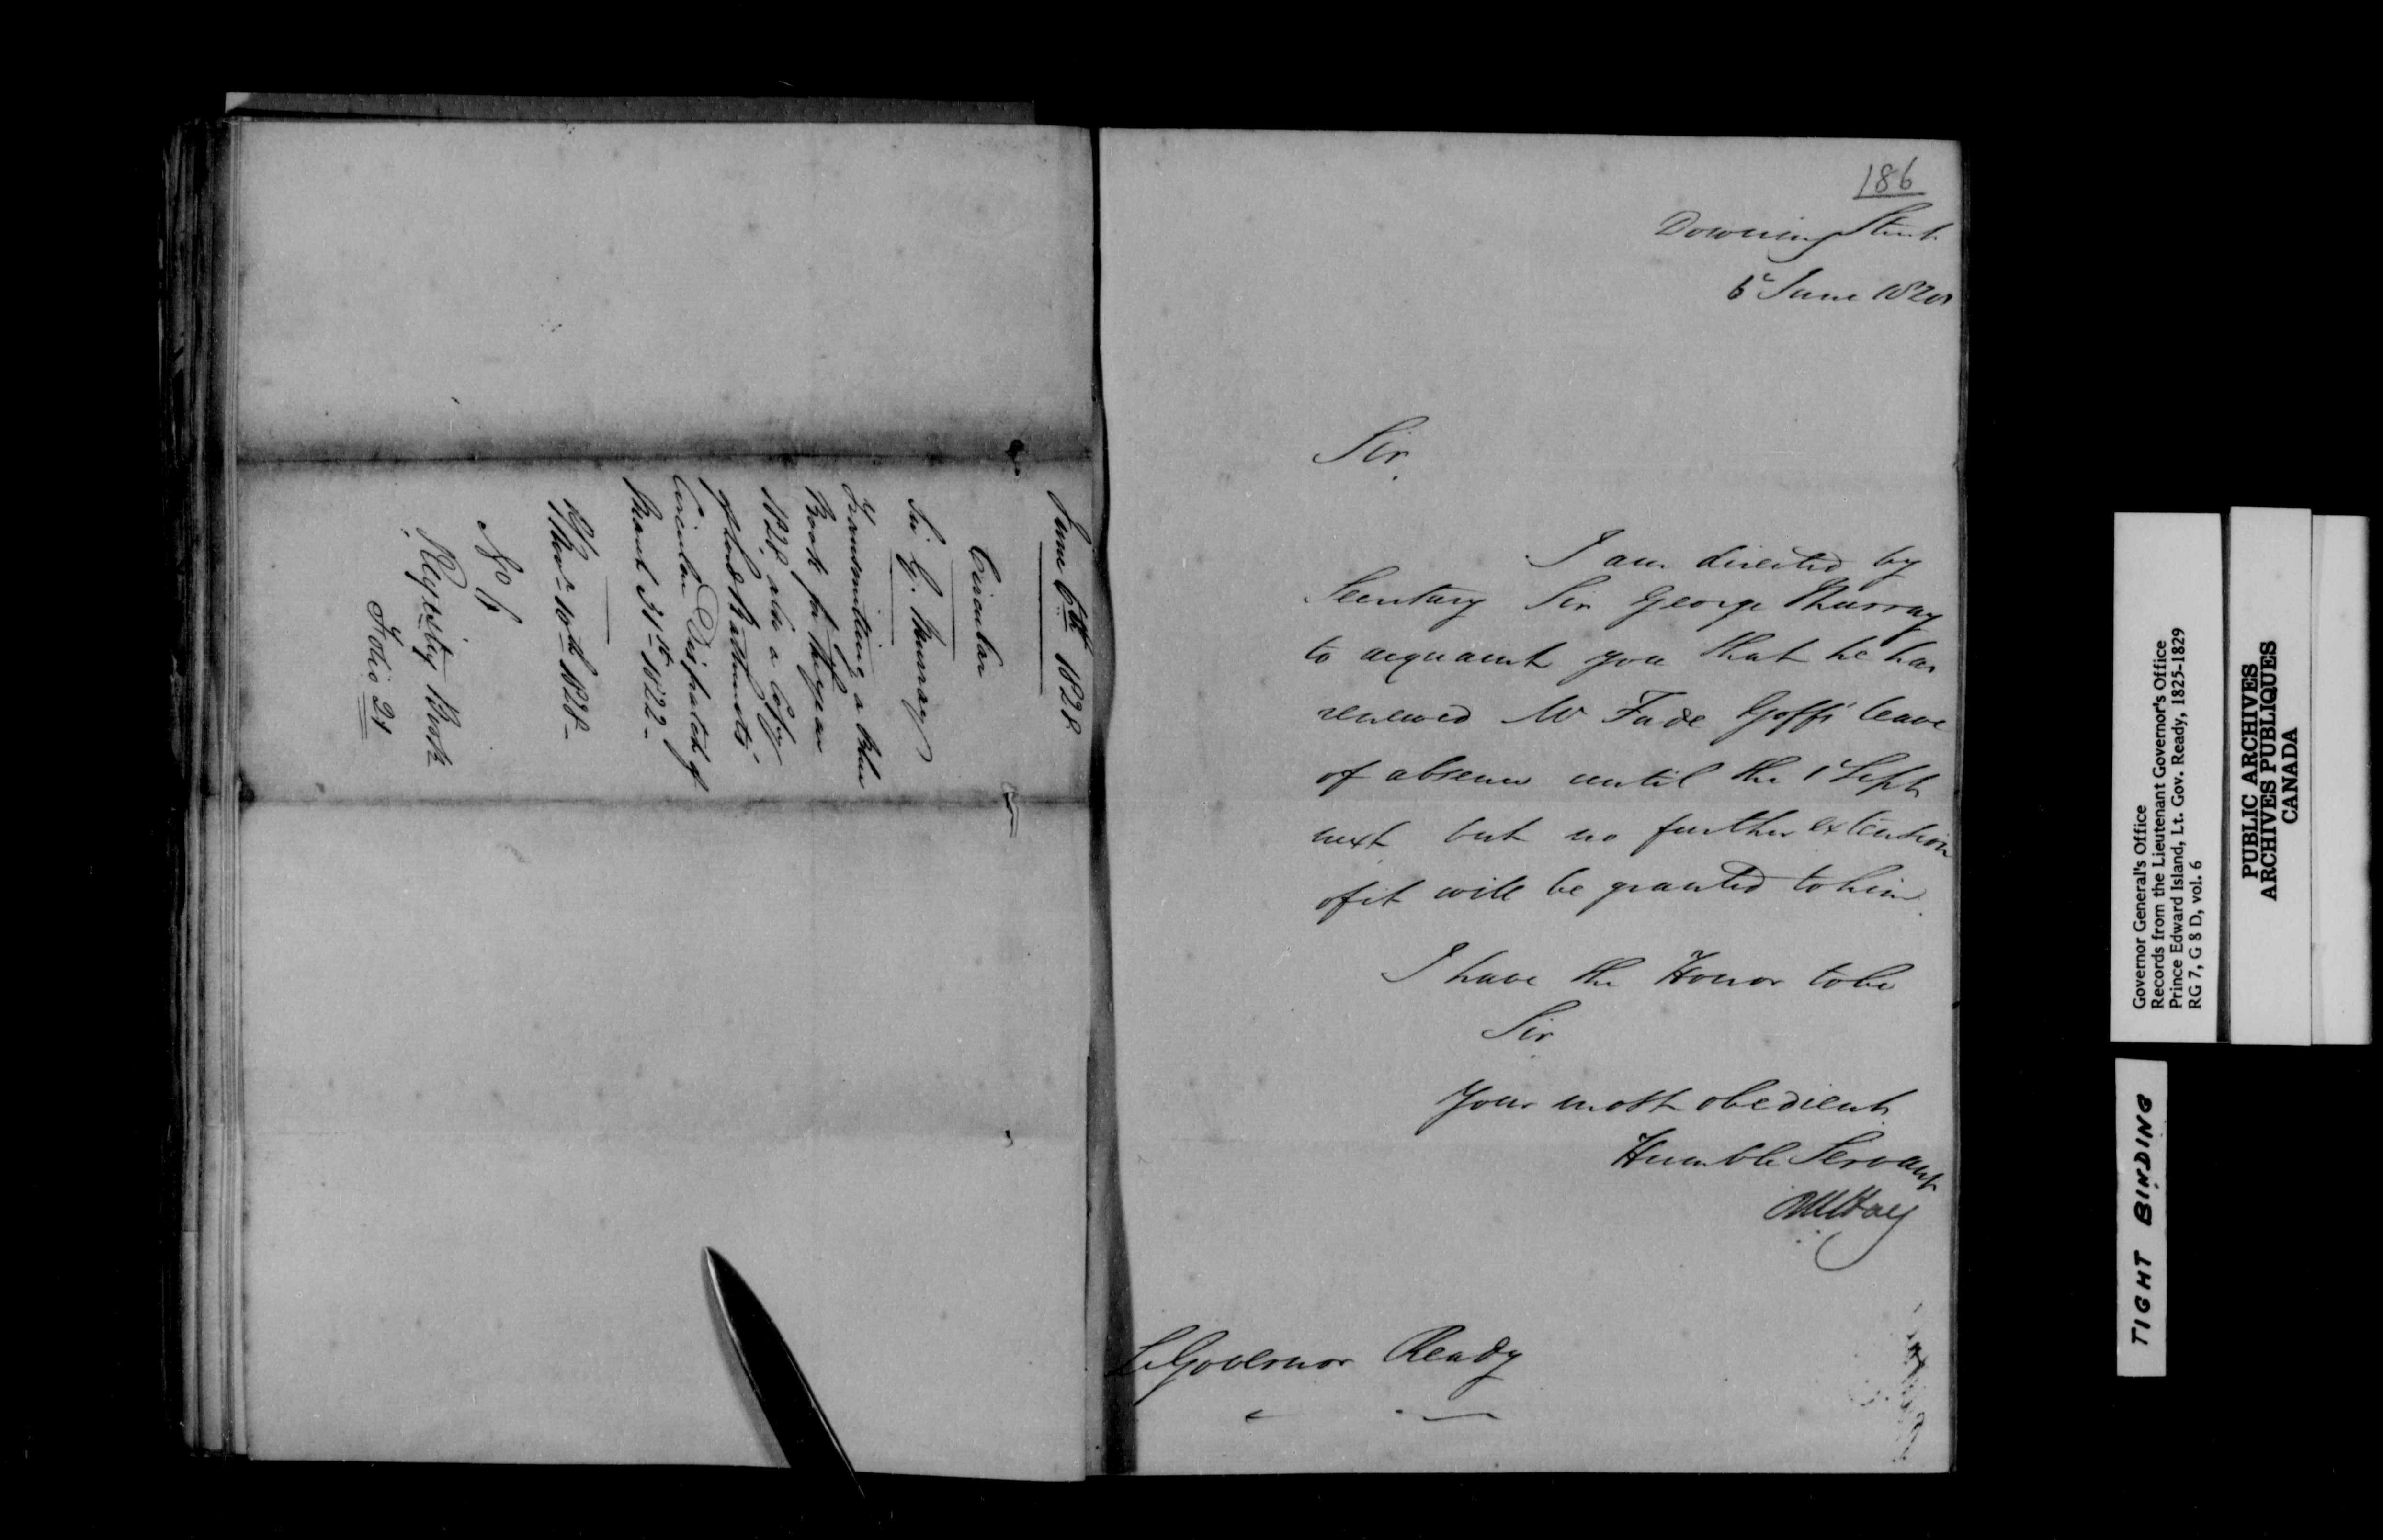 June 6th 1828
Circular
Sir G. Murray
Transmitting a Blue
Book for the year
1828 also a Copy
of Lord Bathursts'
Circular Dispatch of
March 31st 1822 -
R/ Novr 10th 1828 -
No 4
Registry Book
Folio 21
186
Downing Street
6 June 1828
Sir,
I am directed by
Secretary Sir George Murray
to acquaint you that he has
renewed Mr Fade Goff's leave
of absence until the 1 Sept
next but no further extension
of it will be granted to him.
I have the Honor to be
Sir
Your most obedient
Humble Servant
RW Hay
Lt Governor Ready
Governor General's Office
Records from the Lieutenant Governor's Office
Prince Edward Island, Lt. Gov. Ready, 1825-1829
RG 7, G 8 D, vol. 6
PUBLIC ARCHIVES
ARCHIVES PUBLIQUES
CANADA
TIGHT BINDING